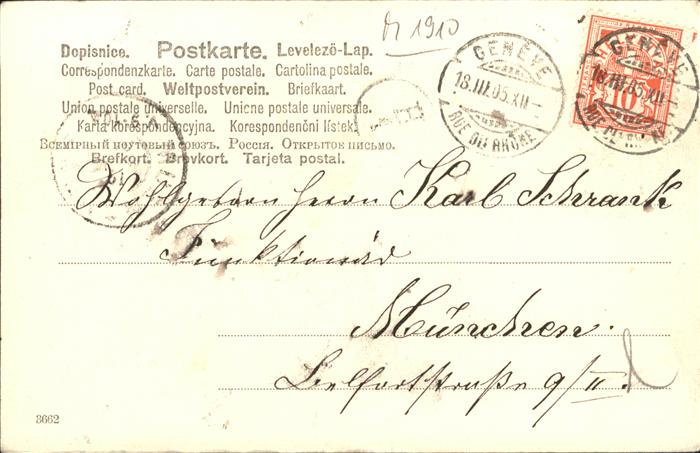 Dopisnice. Postkarte. Levelező-Lap.
Correspondenzkarte. Carte postale. Cartolina postale.
Post card. Weltpostverein. Briefkaart.
Union postale universelle. Unione postale universale.
Karta korespondencyjna. Korespondenční lístek.
Всемірный почтовый союзъ. Россія. Открытое письмо.
Brefkort. Brevkort. Tarjeta postal.
1910
GENÈVE
18.III.05.XII
RUE DU RHÔNE
GENÈVE
18.III.05.XII
10
Wohlgeborn Herrn Karl Schrank
Funktionär
München.
Belfortstraße 9/II.
3662